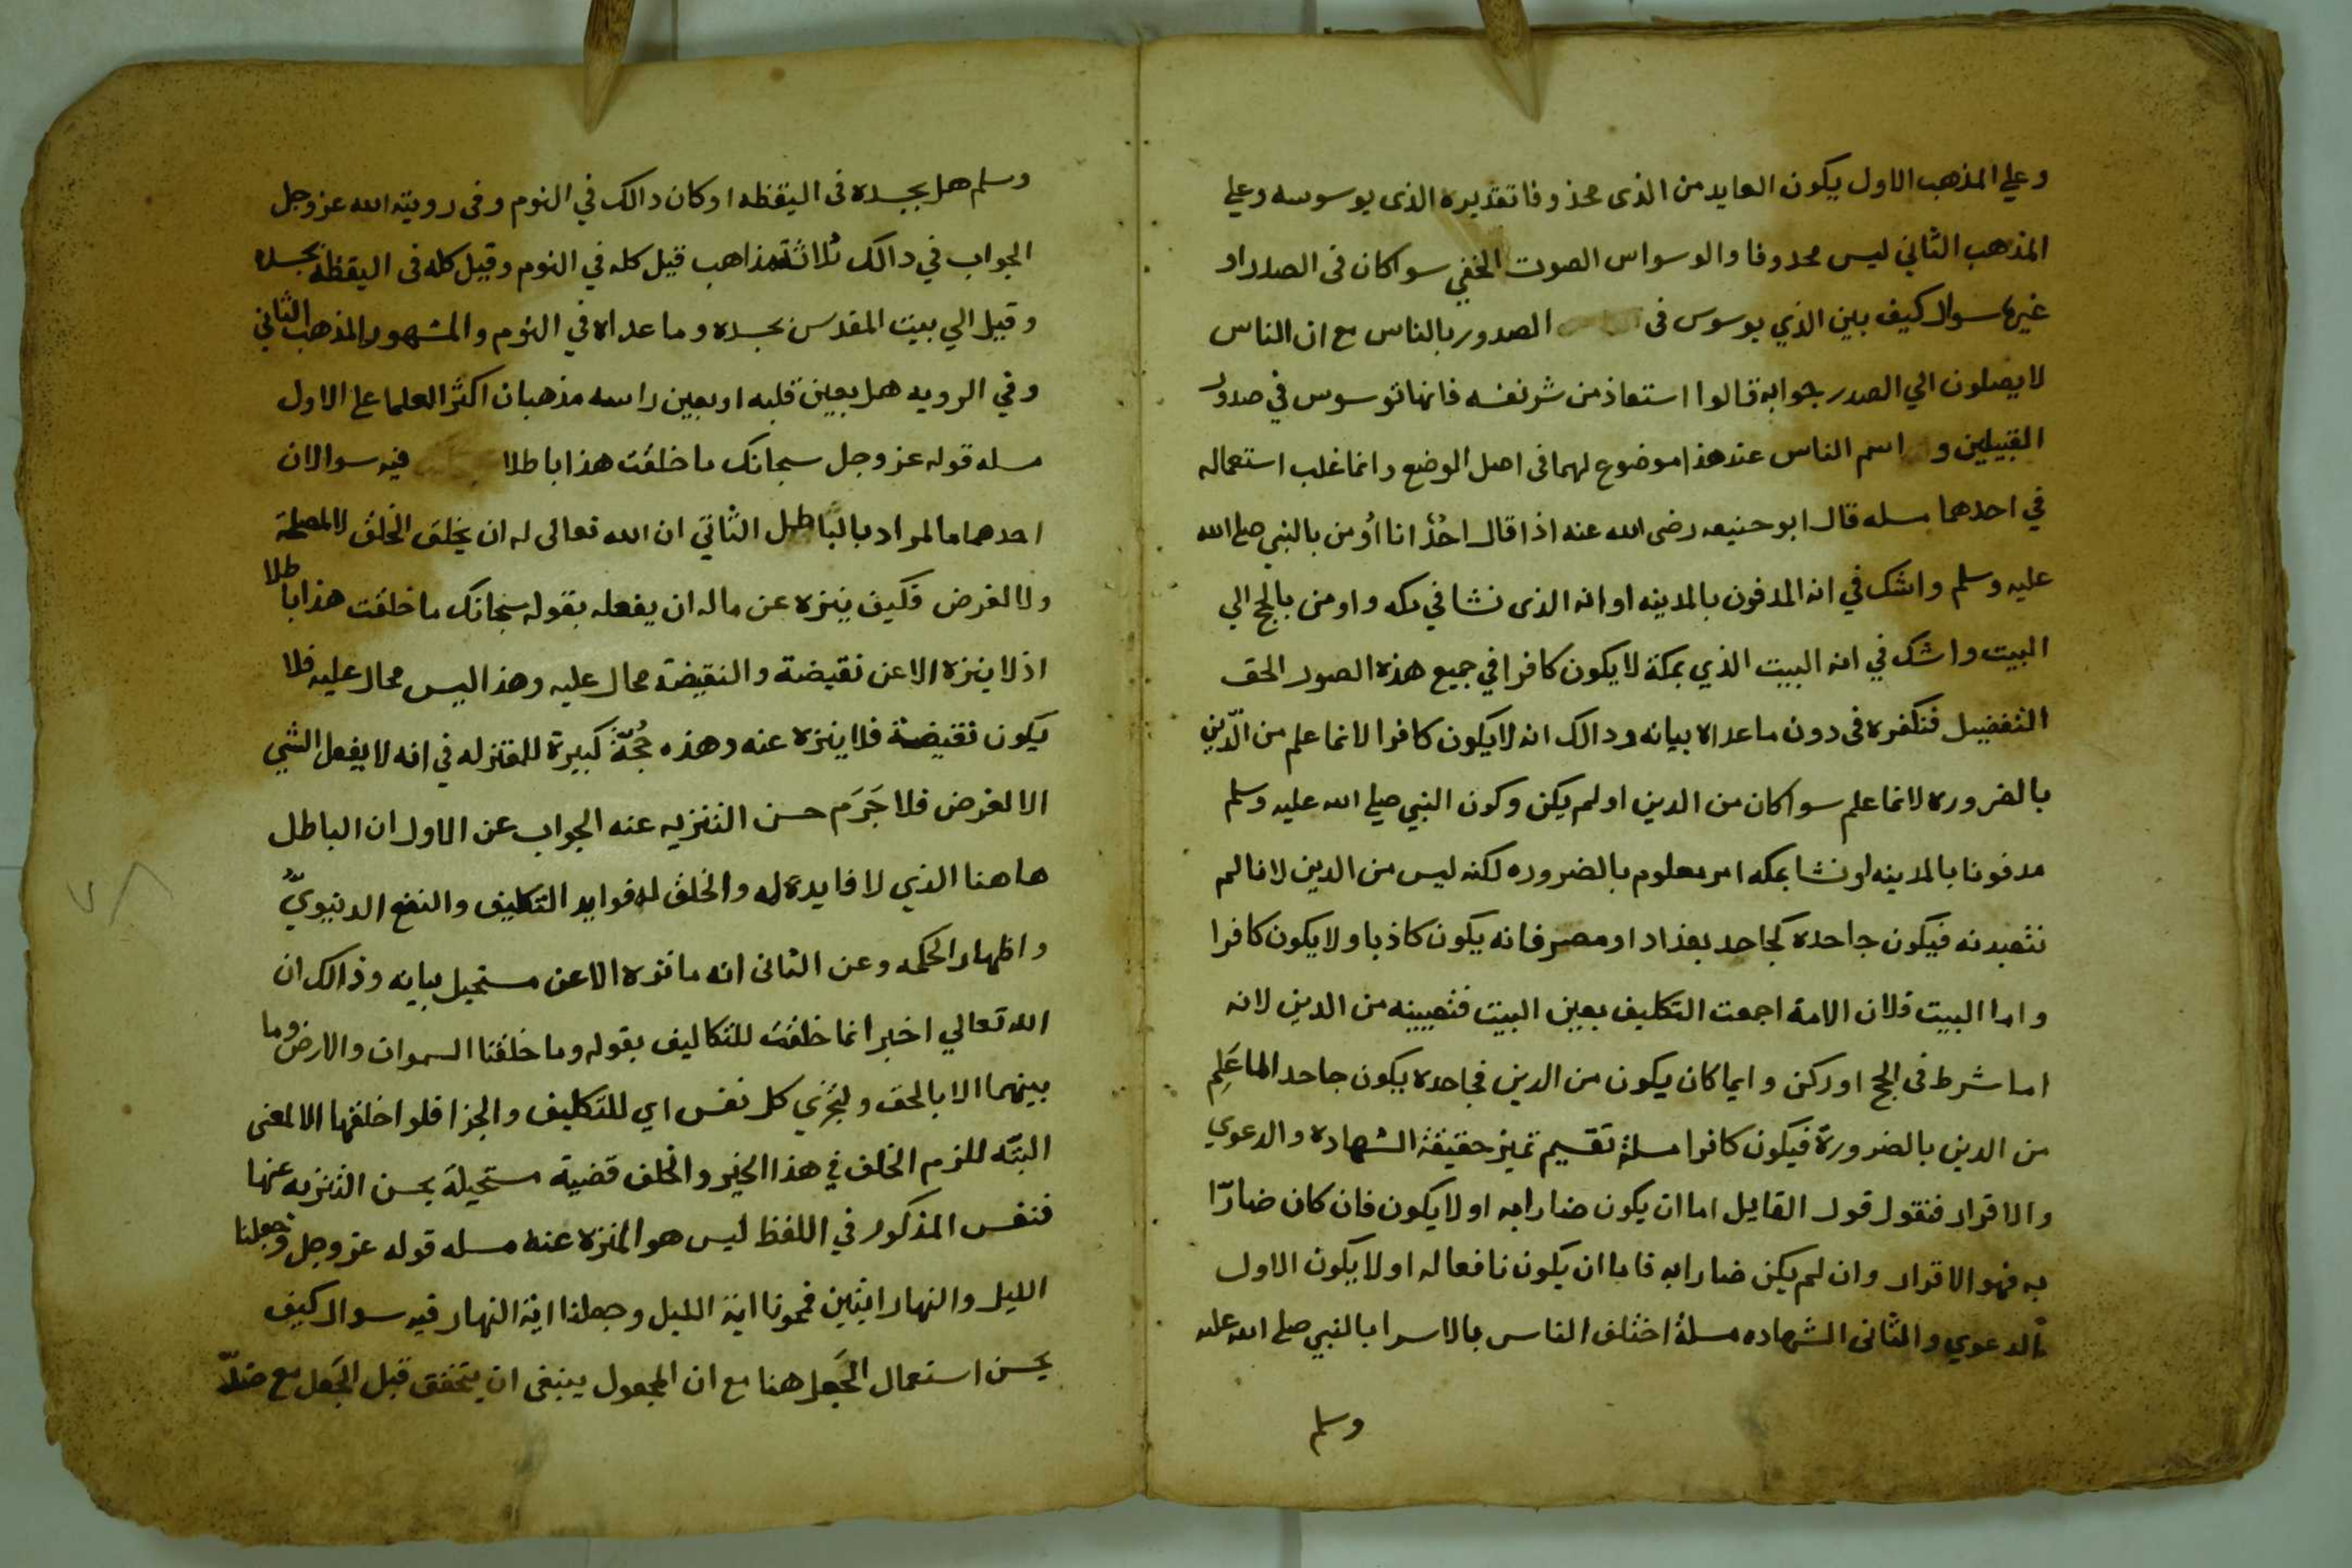 وعلي المذهب الاول يكون العايد من الذى محذوفا تقديره الذى يوسوسه وعلي
المذهب الثاني ليس محدوفا والوسواس الصوت الخفي سوا كان فى الصدر او
غيرها سوال كيف بين الذي يوسوس فى الصدور بالناس مع ان الناس
لا يصلون الي الصدر جوابه قالوا استعاذ من شر نفسه فانها توسوس في صدور
القبيلين و اسم الناس عند هذا موضوع لهما فى اصل الوضع وانما غلب استعماله
في احدهما مسله قال ابو حنيفه رضى الله عنه اذا قال احدٌ انا اُومن بالنبي صلي الله
عليه وسلم واشك في انه المدفون بالمدينه او انه الذى نشا في مكه واومن بالحج الي
البيت واشك في انه البيت الذي بمكة لا يكون كافرا في جميع هذه الصور الحق
التفضيل فنكفره فى دون ما عداه بيانه ودالك انه لا يكون كافرا لانما علم من الدّين
بالضروره لانما علم سوا كان من الدين او لم يكن وكون النبي صلي الله عليه وسلم
مدفونا بالمدينه او نشا بمكه امر معلوم بالضروره لكنه ليس من الدين لانا لم
نتعبد به فيكون جاحده كجاحد بغداد او مصر فانه يكون كاذبا ولا يكون كافرا
واما البيت فلان الامة اجمعت التكليف بعين البيت فتعيينه من الدين لانه
اما شرط فى الحج او ركن وايما كان يكون من الدين فجاحده يكون جاحد الما عَلِم
من الدين بالضرورة فيكون كافرا مسلة تقسيم تميز حقيقة الشهاده والدعوي
والاقرار فنقول قول القايل اما ان يكون ضارا به او لا يكون فان كان ضارّا
به فهو الاقرار وان لم يكن ضارا به فاما ان يكون نافعا له او لا يكون الاول
الدعوي والثانى الشهاده مسلة اختلف الناس بالاسرا بالنبي صلي الله عليه
وسلم
وسلم هل بجسده فى اليقظه او كان دالك في النوم وفى روية الله عز وجل
الجواب في دالك ثلاثة مذاهب قيل كله في النوم وقيل كله فى اليقظه بجسده
وقيل الي بيت المقدس بجسده وما عداه في النوم والمشهور المذهب الثاني
وفي الرويه هل بعين قلبه او بعين راسه مذهبان اكثر العلما على الاول
مسله قوله عز وجل سبحانك ما خلقت هذا باطلا فيه سوالان
احدهما ما المراد بالباطل الثاني ان الله تعالى له ان يخلق الخلق لا لمصلحة
ولا لغرض فكيف ينزه عن ماله ان يفعله بقوله سبحانك ما خلقت هذا باطلا
اذ لا ينزه الا عن نقيضة والنقيضة محال عليه وهذا ليس محال عليه فلا
يكون نقيضة فلا ينزه عنه وهذه حُجّةً كبيرة للمعتزله في انه لا يفعل الشي
الا لغرض فلا جَرَم حسن التنزيه عنه الجواب عن الاول ان الباطل
هاهنا الذي لا فايدة له والخلق له فوايد التكليف والنفع الدنيويُّ
واظهار الحكمه وعن الثانى انه ما نزه الا عن مستحيل بيانه وذالك ان
الله تعالي اخبر انما خلقت للتكاليف بقوله وما خلقنا السموات والارض وما
بينهما الا بالحق ولتجزي كل نفس اي للتكليف والجزا فلو اخلقها الا لمعنى
البتّه للزم الخلف في هذا الخبر والخلف قضية مستحيلة بحسن التنزيه عنها
فنفس المذكور في اللفظ ليس هو المنزه عنه مسله قوله عز وجل وجعلنا
الليل والنهار ايتين فمحونا اية الليل وجعلنا اية النهار فيه سوال كيف
يحسن استعمال الجَعل هنا مع ان المجعول ينبغى ان يتحقق قبل الجَعل مع ضدّ